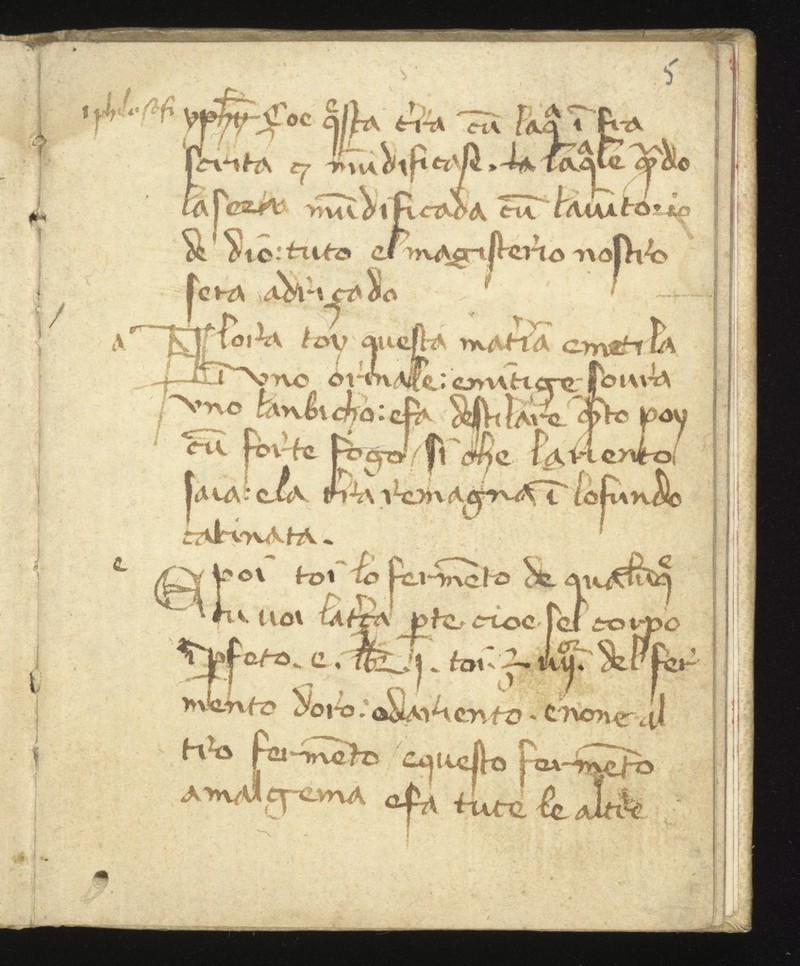 5
i philosofi
yphy Çoe q̄sta t̄ra cū laqa ī fra
scrita ⁊ mūdificase. la laqale q̄do
la sera mūdificada cū lauītorio
de dio: tuto el magisterio nostro
sera adriçado
a
Allora toy questa mat̄ia e metila
ī vno orinale: emītige soura
vno lanbicho: efa destilare q̄to poy
cū forte fogo si che lariento
saia: e la t̄ra remagna ī lofundo
calcinata.
e
E poi toi lo fermēto de qualūq̄
tu voi la tȝa pte cioe sel corpo
īpfeto. e. lb 1. toi. ȝ iiij. del fer
mento doro: o dariento. e none al
tro fermēto e questo fermēto
amalgema efa tute le altre